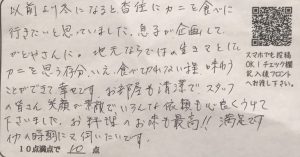 以前より冬になると香住にカニを食べに
行きたいと思っていました。息子が企画して
かどやさんに。地元ならではの生きてた
カニを思う存分、いえ食べ切れない程味わう
ことができて幸せです。お部屋も清潔でスタッフ
の皆さん笑顔が素敵でいろんな依頼も心良くうけて
下さいました。お料理のお味も最高!!満足です
他の時期にも伺いたいです。
10点満点で 10 点
スマホでも投稿
OK!チェック欄
記入後フロント
へお渡し下さい。